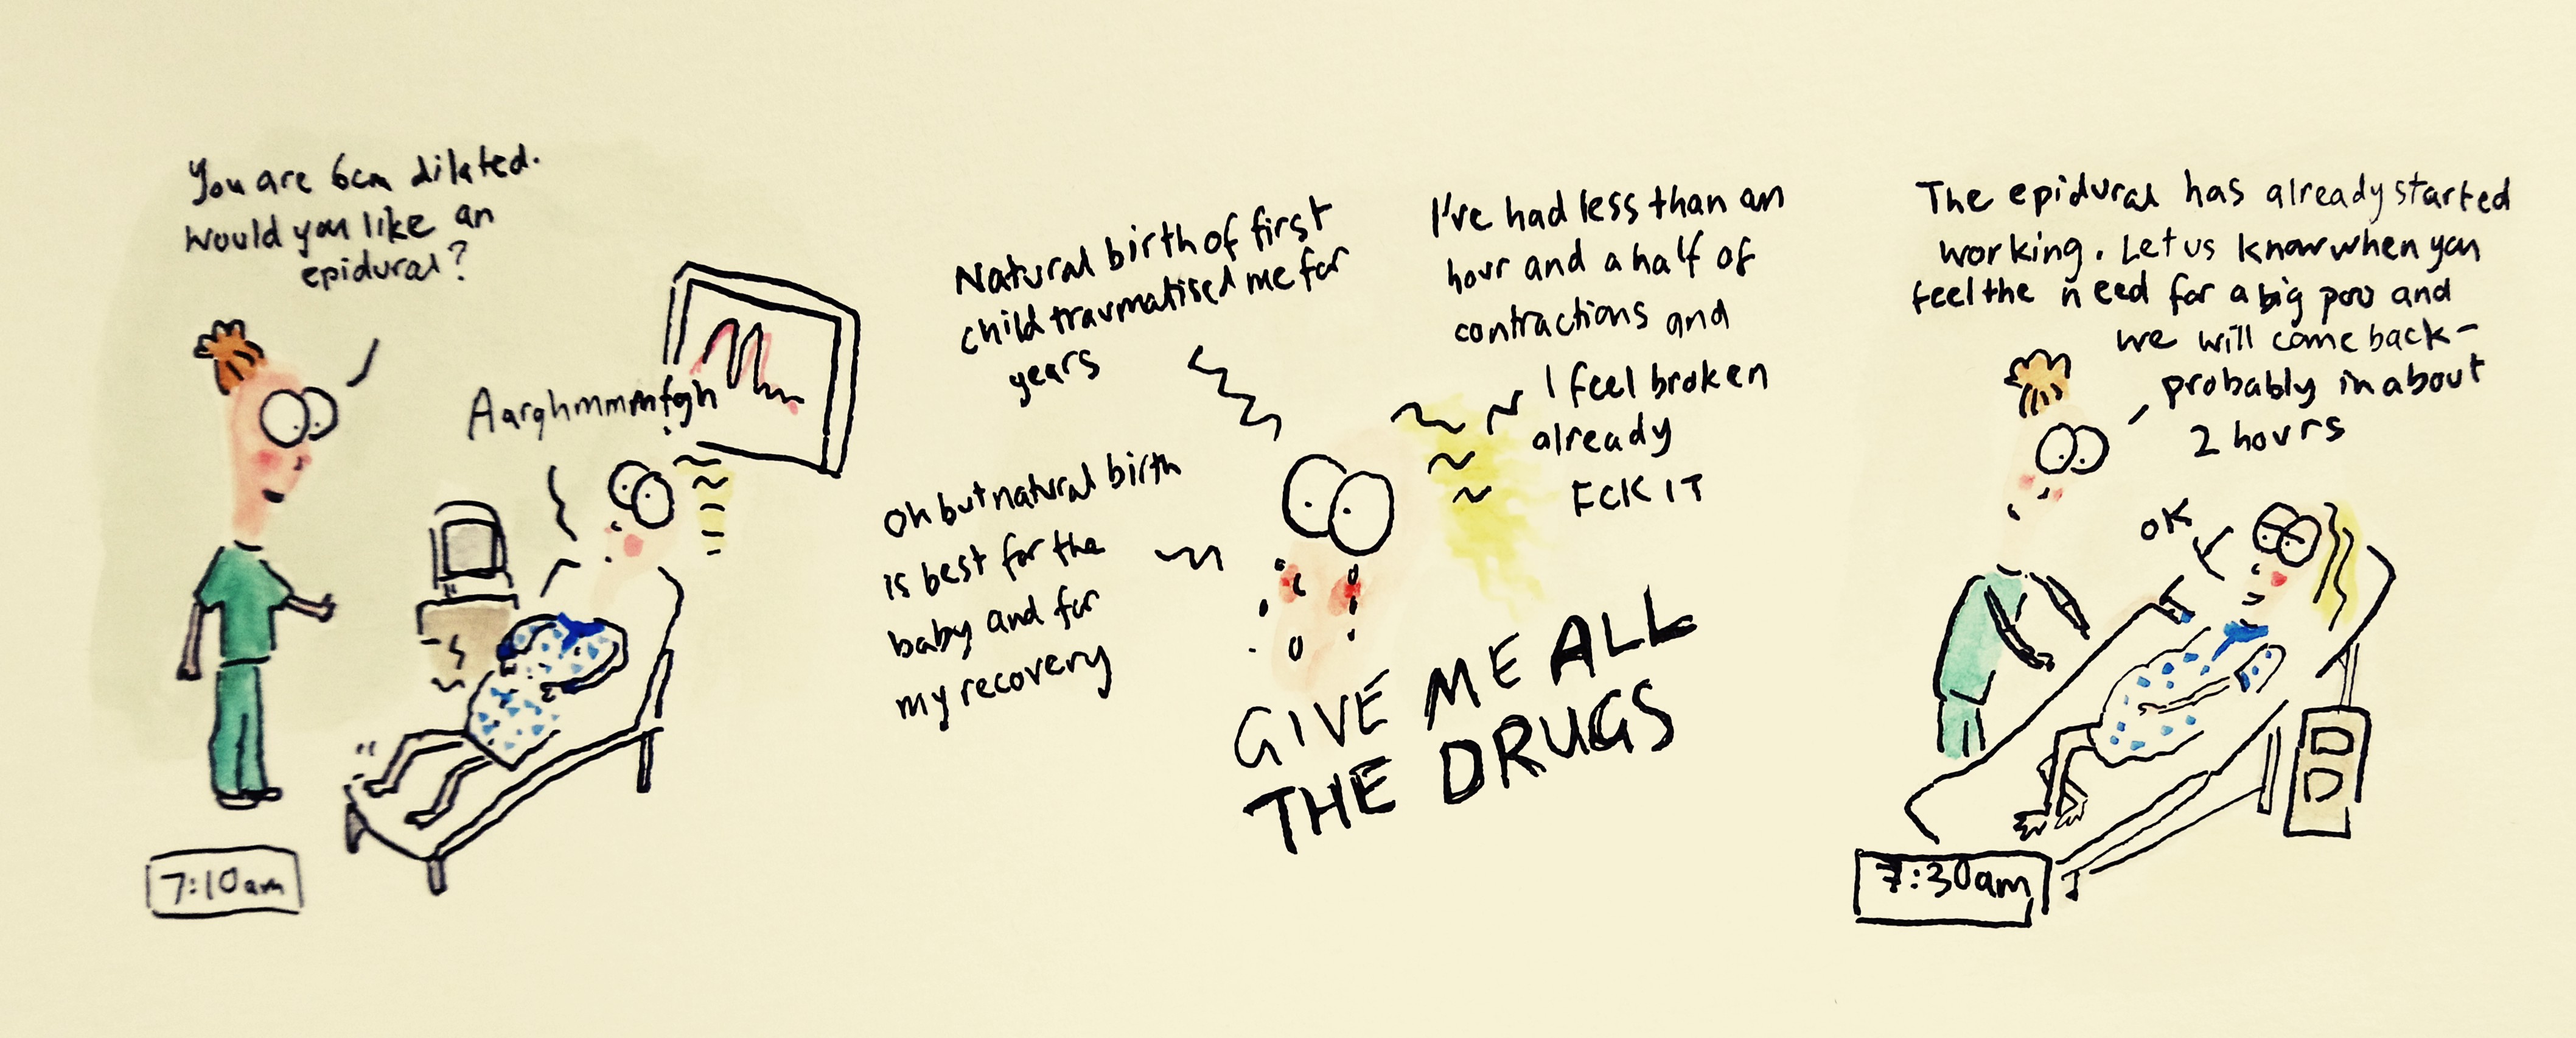 You are 6cm dilated.
Would you like an
epidural?
Aarghmmmmfgh
7:10am
Natural birth of first
child traumatised me for
years
Oh but natural birth
is best for the
baby and for
my recovery
I've had less than an
hour and a half of
contractions and
I feel broken
already
FCK IT
GIVE ME ALL
THE DRUGS
The epidural has already started
working. Let us know when you
feel the need for a big poo and
we will come back-
probably in about
2 hours
OK
7:30am